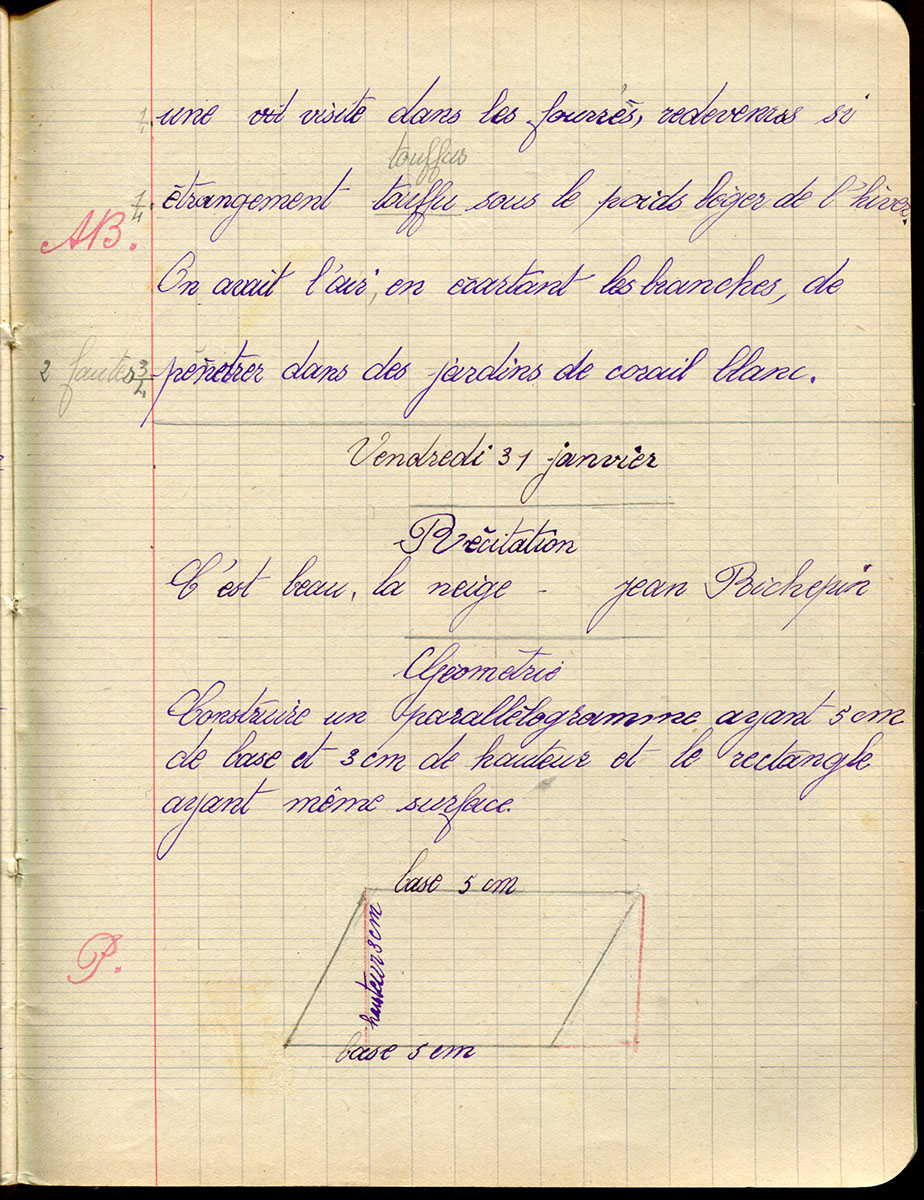 1. une vit visite dans les fourrés, redevenus si
touffus
1/4. étrangement touffu sous le poids léger de l'hiver.
AB.
On avait l'air, en écartant les branches, de
2 fautes 3/4 pénétrer dans des jardins de corail blanc.
Vendredi 31 janvier
Récitation
C'est beau, la neige - jean Richepin
Géométrie
Construire un parallélogramme ayant 5 cm
de base et 3 cm de hauteur et le rectangle
ayant même surface.
base 5 cm
hauteur 3 cm
P.
base 5 cm